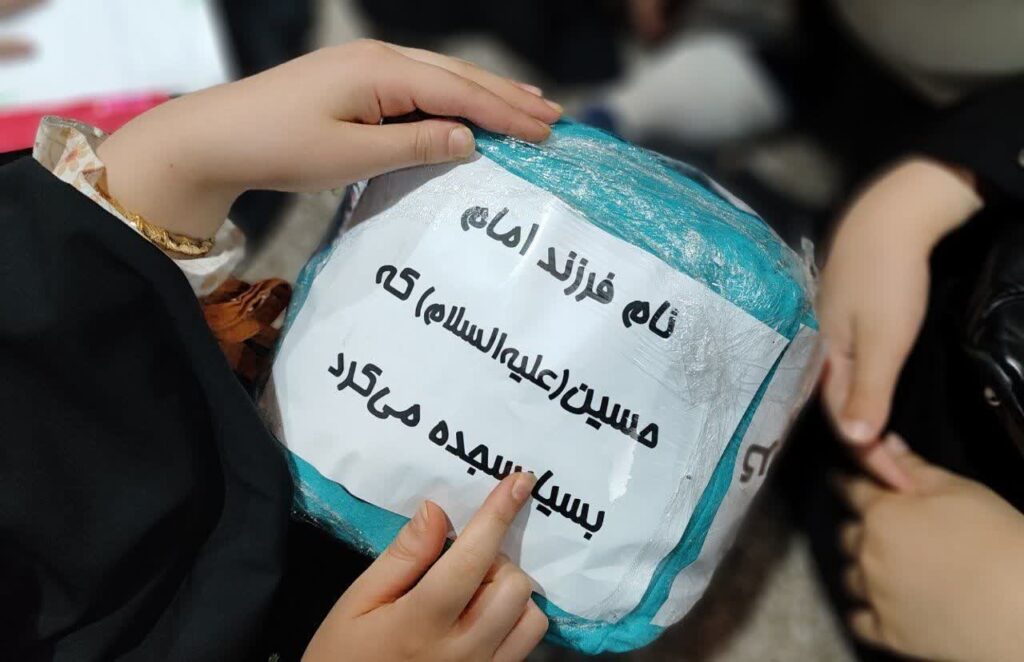 نام فرزند امام
حسین(علیه‌السلام) که
بسیار سجده می‌کرد